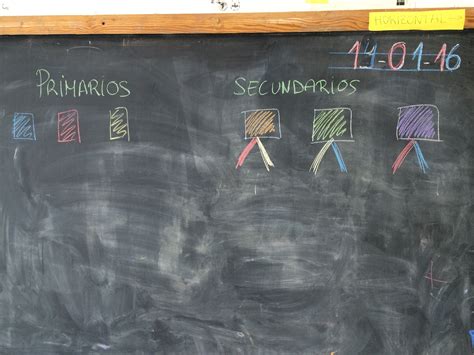 HORIZONTAL
14-01-16
PRIMARIOS
SECUNDARIOS